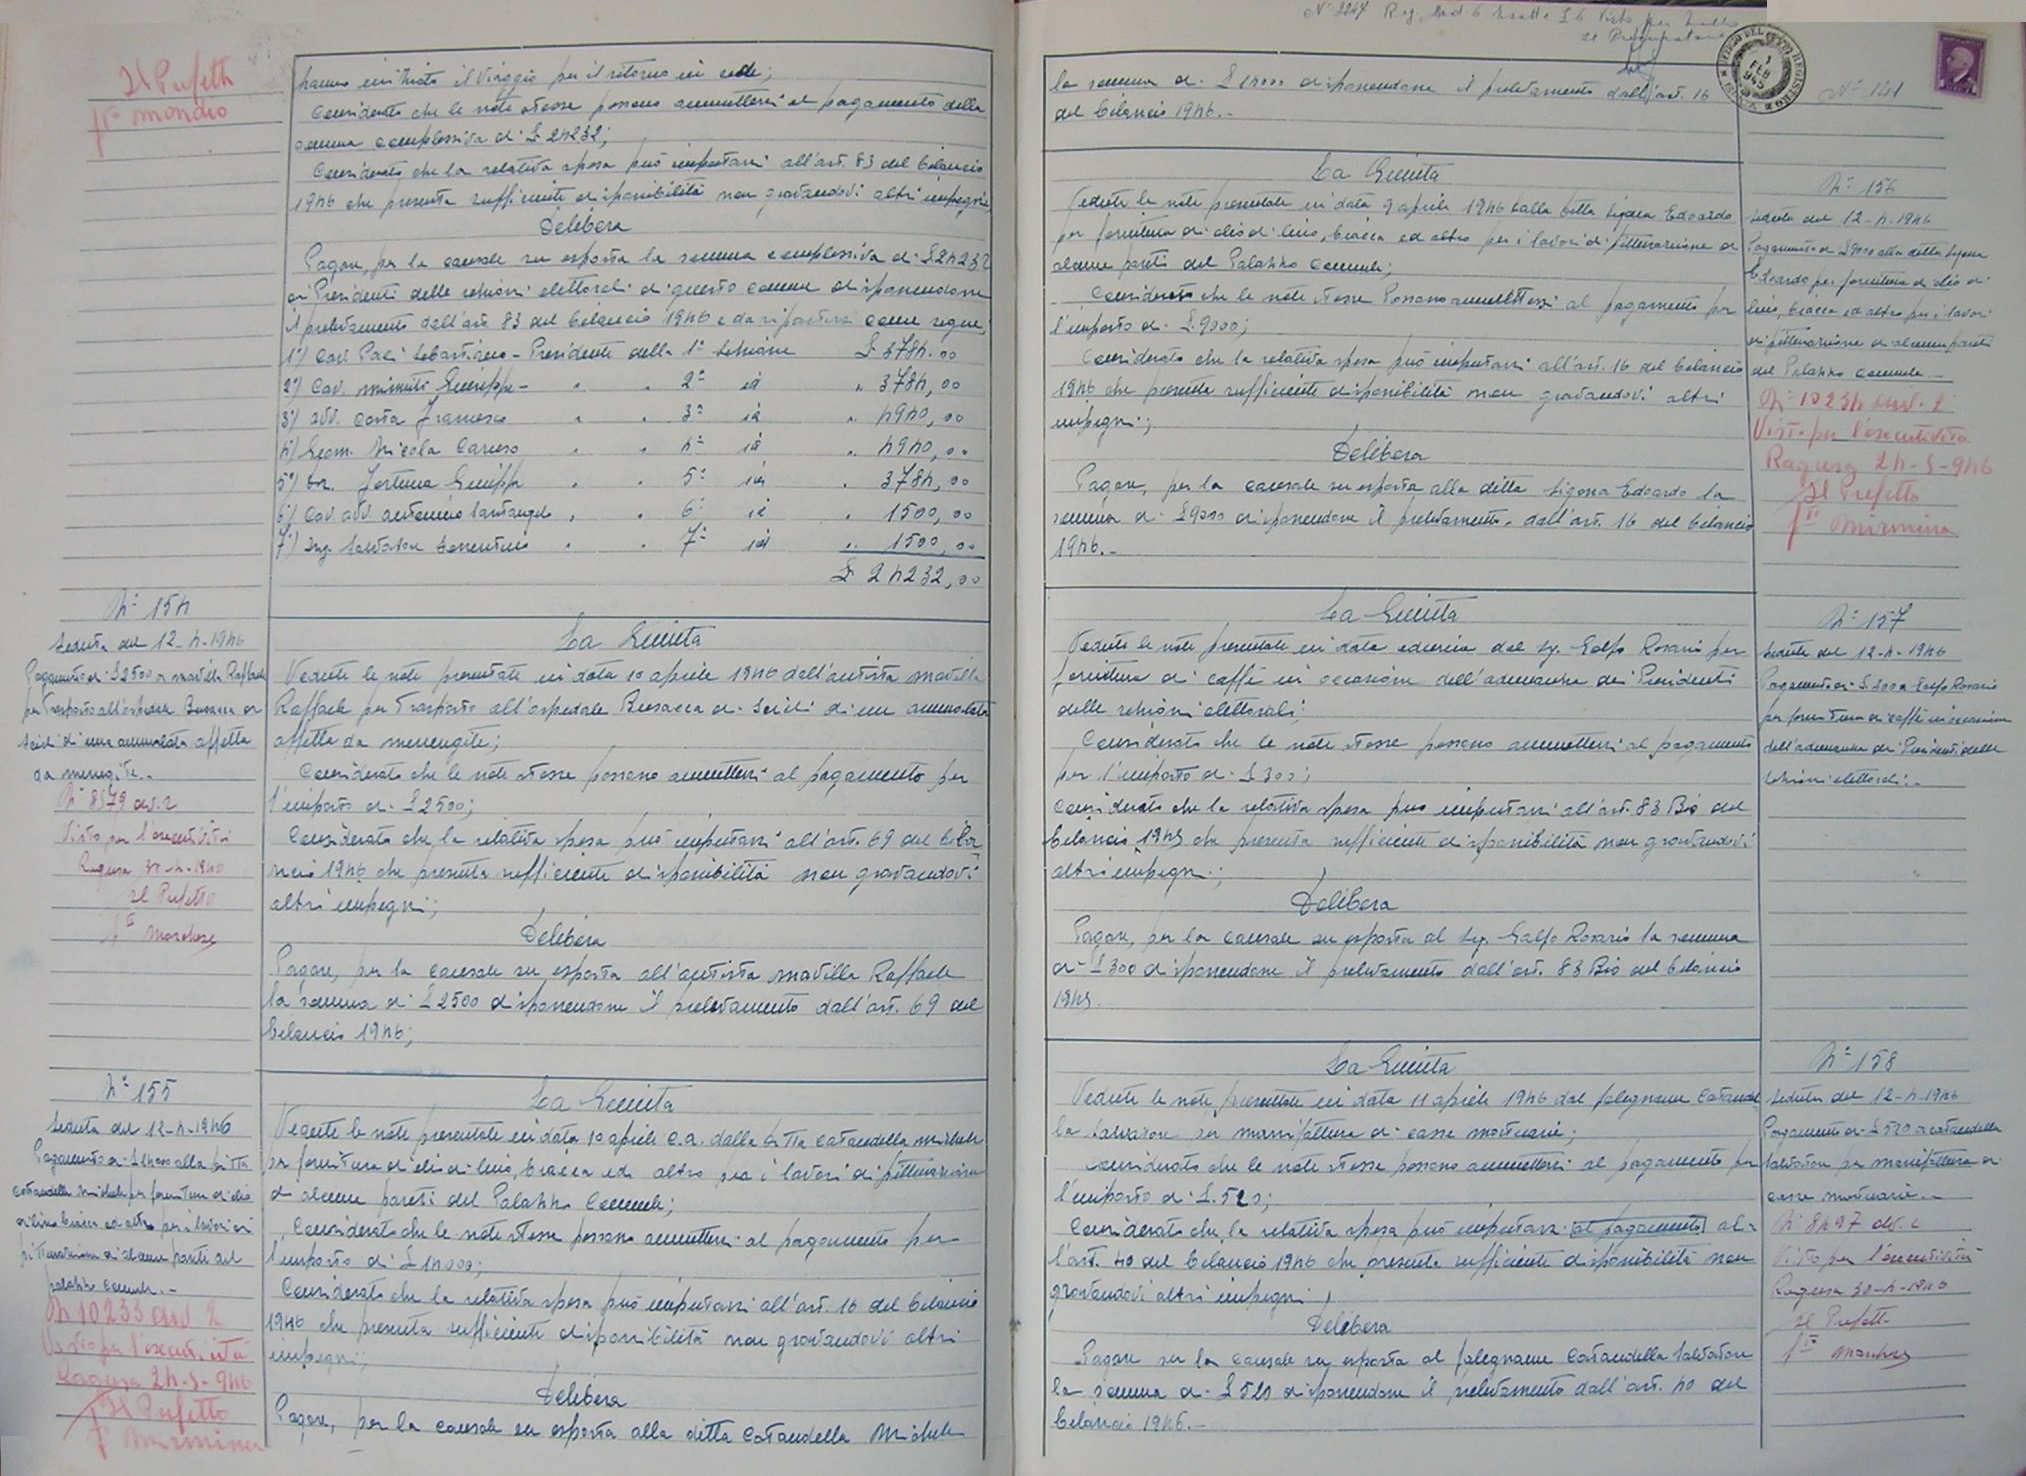 Il Prefetto
fto Mondio
hanno iniziato il viaggio per il ritorno in sede;
Considerato che le note stesse possono ammettersi al pagamento della
somma complessiva di £ 24232;
Considerato che la relativa spesa può imputarsi all'art. 83 del bilancio
1946 che presenta sufficiente disponibilità non gravandovi altri impegni,
Delibera
Pagare, per la causale su esposta la somma complessiva di £ 24232
ai Presidenti delle sezioni elettorali di questo comune disponendone
il prelevamento dall'art. 83 del bilancio 1946 e da ripartirsi come segue:
1°) Cav. Paci Sebastiano - Presidente della 1ª Sezione £ 3784.00
2°) Cav. Minuti Giuseppe - " " 2ª id " 3784,00
3°) Avv. Costa Francesco " " 3ª id " 4940,00
4°) Geom. Nicola Caruso " " 4ª id " 4940,00
5°) Fortuna Giuseppe " " 5ª id " 3784,00
6°) Cav. Avv. Antonino Santangelo " " 6ª id " 1500,00
7°) Ing. Salvatore Sorrentino " " 7ª id " 1500,00
£ 24232,00
N° 154
Seduta del 12-4-1946
Pagamento di £ 2500 a Mavilla Raffaele
per trasporto all'ospedale Busacca di
Scicli di una ammalata affetta
da menegite.-
N° 8579 div. 2
Visto per l'esecutività
Ragusa 30-4-1946
Il Prefetto
fto
La Giunta
Vedute le note presentate in data 10 aprile 1946 dall'autista Mavilla
Raffaele per trasporto all'ospedale Busacca di Scicli di un ammalata
affetta da menengite;
Considerato che le note stesse possono ammettersi al pagamento per
l'importo di £ 2500;
Considerato che la relativa spesa può imputarsi all'art. 69 del bila
ncio 1946 che presenta sufficiente disponibilità non gravandovi
altri impegni;
Delibera
Pagare, per la causale su esposta all'autista Mavilla Raffaele
la somma di £ 2500 disponendone il prelevamento dall'art. 69 del
bilancio 1946;
N° 155
Seduta del 12-4-1946
Pagamento di £ 14000 alla ditta
Cataudella Michele per fornitura di olio
di lino biacca ed altro per i lavori di
pitturazione di alcune pareti del
palazzo comunale.-
N 10233 div. 2
Visto per l'esecutività
Ragusa 24-5-946
Il Prefetto
fto Mirmina
La Giunta
Vedute le note presentate in data 10 aprile c.a. dalla ditta Cataudella Michele
per fornitura di olio di lino, biacca ed altro per i lavori di pitturazione
di alcune pareti del Palazzo Comunale;
Considerato che le note stesse possono ammettersi al pagamento per
l'importo di £ 14000;
Considerato che la relativa spesa può imputarsi all'art. 16 del bilancio
1946 che presenta sufficiente disponibilità non gravandovi altri
impegni;
Delibera
Pagare, per la causale su esposta alla ditta Cataudella Michele
N° 2247 Reg. Mod. 6 Esatte £ 6 Visto per bollo
Il Procuratore
N° 141
la somma di £ 14000 disponendone il prelevamento dall'art. 16
del bilancio 1946.-
La Giunta
Vedute le note presentate in data 9 aprile 1946 dalla ditta Sigona Edoardo
per fornitura di olio di lino, biacca ed altro per i lavori di pitturazione di
alcune pareti del Palazzo Comunale;
Considerato che le note stesse possono ammettersi al pagamento per
l'importo di £ 9000;
Considerato che la relativa spesa può imputarsi all'art. 16 del bilancio
1946 che presenta sufficiente disponibilità non gravandovi altri
impegni;
Delibera
Pagare, per la causale su esposta alla ditta Sigona Edoardo la
somma di £ 9000 disponendone il prelevamento dall'art. 16 del bilancio
1946.-
N° 156
Seduta del 12-4-1946
Pagamento di £ 9000 alla ditta Sigona
Edoardo per fornitura di olio di
lino, biacca ed altro per i lavori
di pitturazione di alcune pareti
del Palazzo Comunale.-
N° 10234 div. 2
Visto per l'esecutività
Ragusa 24-5-946
Il Prefetto
fto Mirmina
La Giunta
Vedute le note presentate in data odierna dal Sig. Galfo Rosario per
fornitura di caffè in occasione dell'adunanza dei Presidenti
delle sezioni elettorali;
Considerato che le note stesse possono ammettersi al pagamento
per l'importo di £ 300;
Considerato che la relativa spesa può imputarsi all'art. 83 Bis del
bilancio 1945 che presenta sufficiente disponibilità non gravandovi
altri impegni;
Delibera
Pagare, per la causale su esposta al Sig. Galfo Rosario la somma
di £ 300 disponendone il prelevamento dall'art. 83 Bis del bilancio
1945.
N° 157
Seduta del 12-4-1946
Pagamento di £ 300 a Galfo Rosario
per fornitura di caffè in occasione
dell'adunanza dei Presidenti delle
sezioni elettorali.-
La Giunta
Vedute le note presentate in data 11 aprile 1946 dal falegname Cataudel
la Salvatore per manifattura di casse mortuarie;
Considerato che le note stesse possono ammettersi al pagamento per
l'importo di £. 520;
Considerato che la relativa spesa può imputarsi al pagamento al-
l'art. 40 del bilancio 1946 che presenta sufficiente disponibilità non
gravandovi altri impegni;
Delibera
Pagare per la causale su esposta al falegname Cataudella Salvatore
la somma di £ 520 disponendone il prelevamento dall'art. 40 del
bilancio 1946.-
N° 158
Seduta del 12-4-1946
Pagamento di £ 520 a Cataudella
Salvatore per manifattura di
casse mortuarie.-
N° 8497 div. 2
Visto per l'esecutività
Ragusa 30-4-1946
Il Prefetto
fto